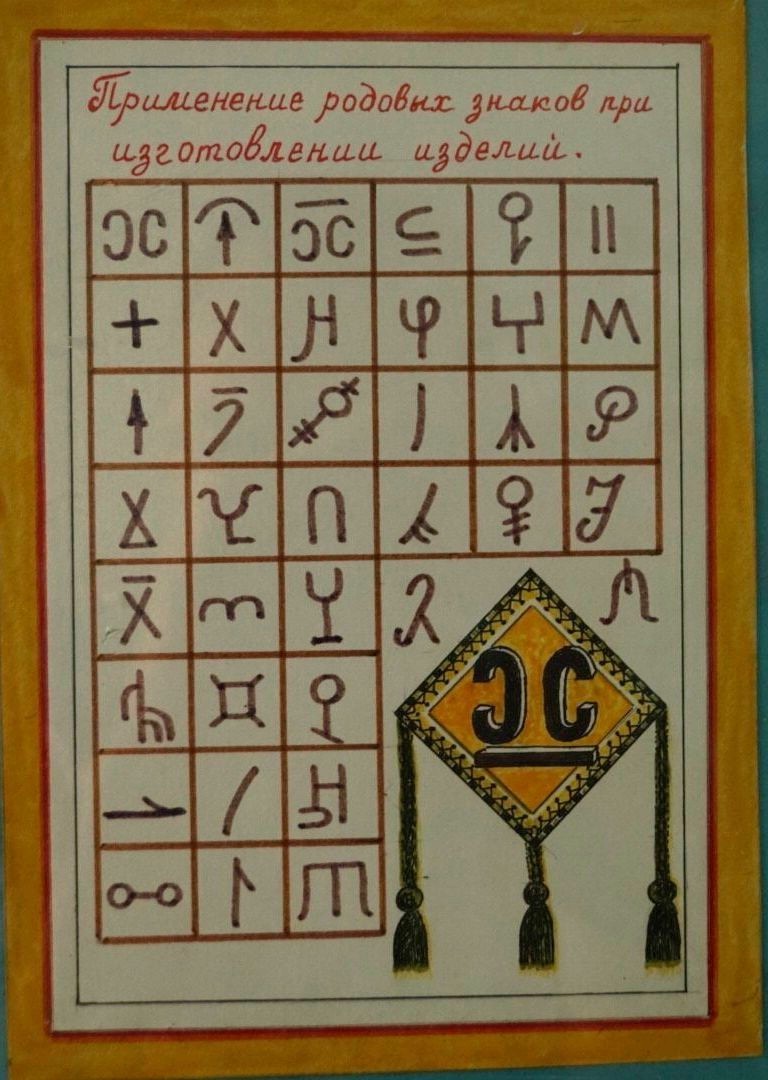 Применение родовых знаков при
изготовлении изделий.